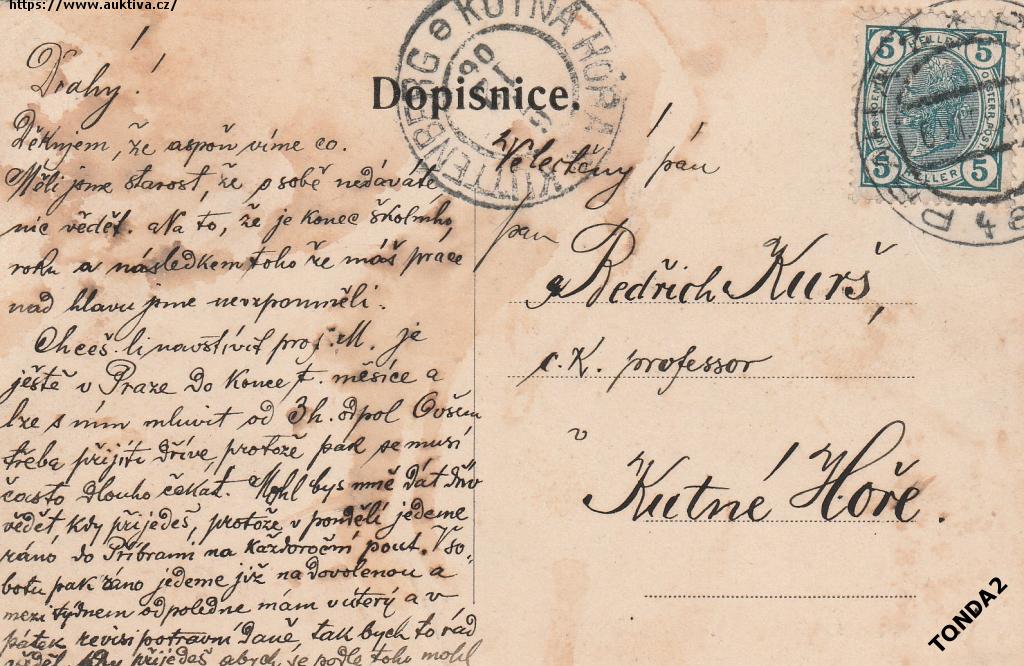 https://www.auktiva.cz/
KUTNÁ HORA
KUTTENBERG
Dopisnice.
5 HELLER 5
5 HELLER 5
Drahý!
Děkujem, že aspoň víme co.
Měli jsme starost, že o sobě nedáváte
nic vědět. Na to, že je konec školního
roku a následkem toho že máš práce
nad hlavu jsme nevzpomněli.
Chceš-li navstívit prof. M. je
ještě v Praze do konce t. měsíce a
lze s ním mluvit od 3h. odpol Ovšem
třeba přijíti dříve, protože pak se musí
často dlouho čekat. Mohl bys mně dát dřív
vědět kdy přijedeš, protože v pondělí jedeme
ráno do Příbrami na každoroční pout. V so-
botu pak ráno jedeme již na dovolenou a
mezi týdnem odpoledne mám v úterý a v
pátek revisi potravní daně, tak bych to rád
věděl kdy přijedeš abych se podle toho mohl
Velectěný pán
pan
Bedřich Kurš,
c. K. professor
v
Kutné Hoře.
TONDA2